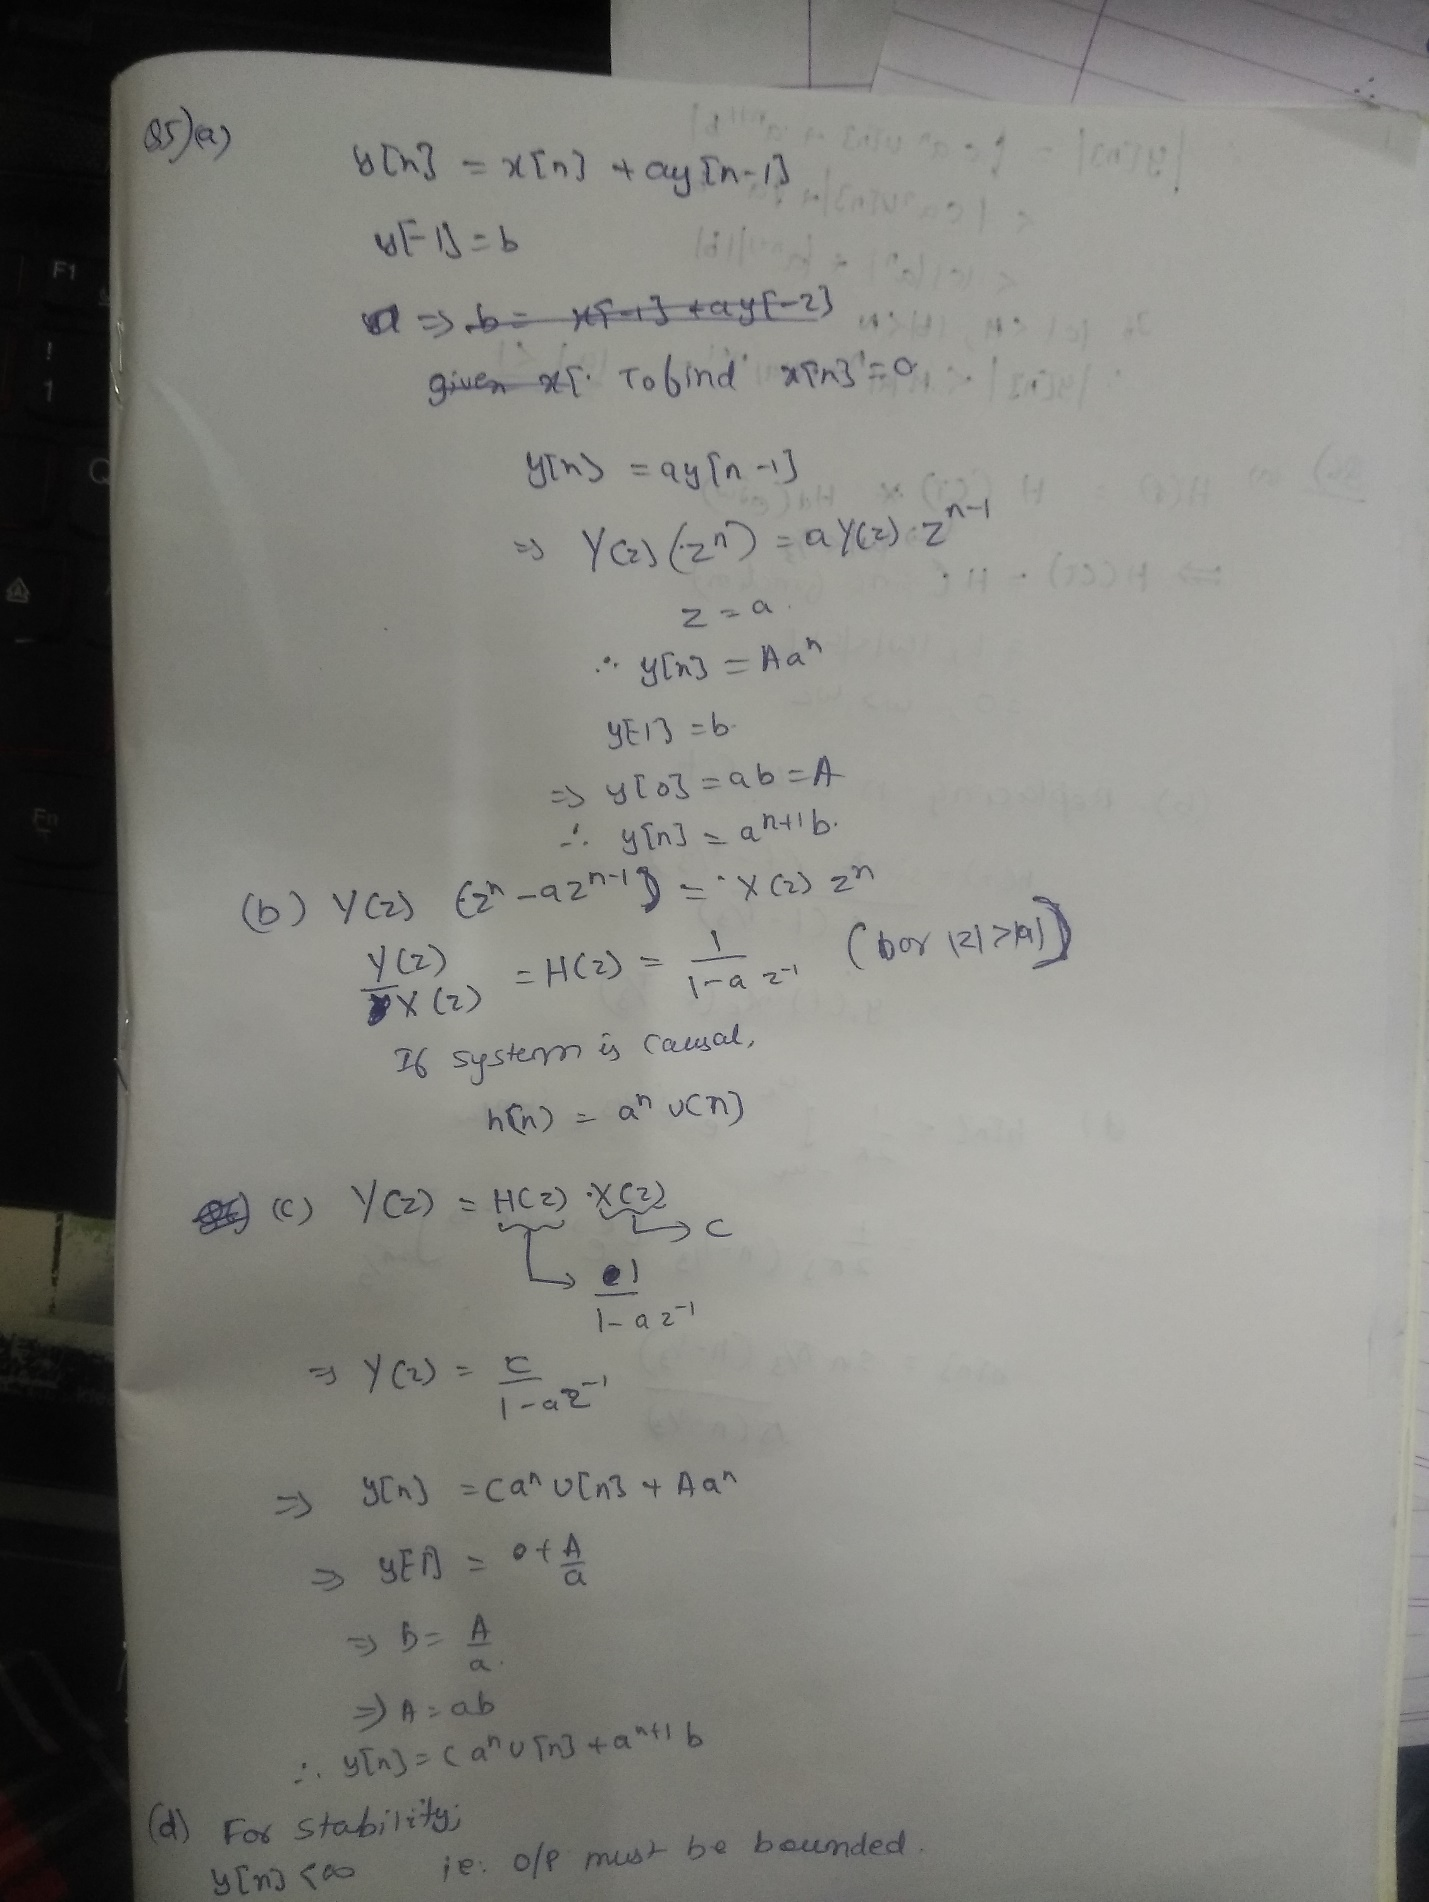 Q5)(a)
y[n] = x[n] + ay[n-1]
y[-1] = b
⇒ b = x[-1] + ay[-2]
given x[. To find x[n] = 0
y[n] = ay[n-1]
⇒ Y(z) (z^n) = a Y(z) z^{n-1}
z = a
∴ y[n] = A a^n
y[-1] = b
⇒ y[0] = ab = A
∴ y[n] = a^{n+1} b.
(b) Y(z) (z^n - a z^{n-1}) = X(z) z^n
Y(z)/X(z) = H(z) = 1/(1-a z^{-1}) (for |z| > |a|)
If system is causal,
h[n] = a^n u[n]
(c) Y(z) = H(z) · X(z)
→ c
→ 1/(1-a z^{-1})
⇒ Y(z) = c/(1-a z^{-1})
⇒ y[n] = c a^n u[n] + A a^n
⇒ y[-1] = 0 + A/a
⇒ b = A/a
⇒ A = ab
∴ y[n] = c a^n u[n] + a^{n+1} b
(d) For stability;
y[n] < ∞ ie: O/P must be bounded.
F1
!
1
Q
A
Fn